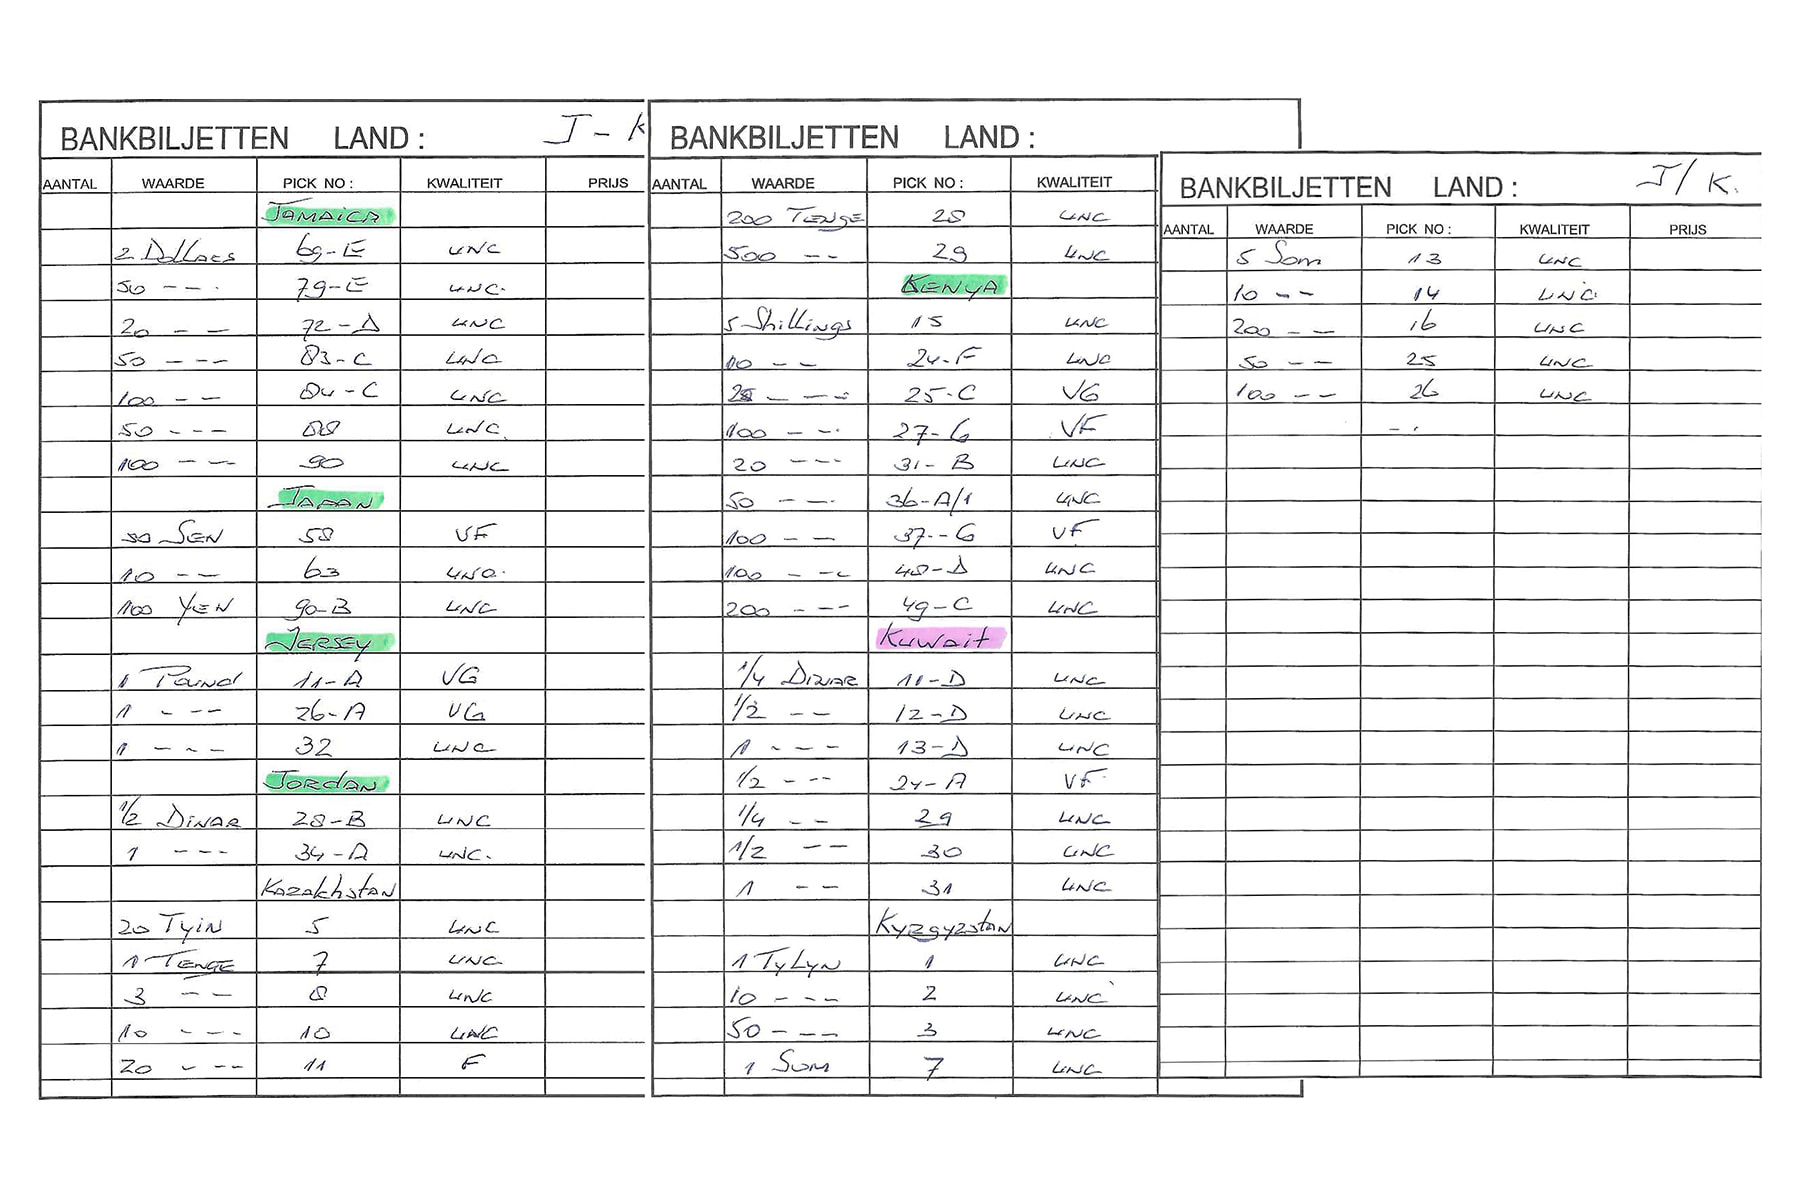 BANKBILJETTEN LAND : J - K
AANTAL WAARDE PICK NO : KWALITEIT PRIJS
JAMAICA
2 Dollars 69-E UNC
50 --- 79-E UNC.
20 -- 72-D UNC
50 --- 83-C UNC
100 -- 84-C UNC
50 --- 88 UNC.
100 --- 90 UNC
JAPAN
SEN 58 VF
10 -- 63 UNC.
100 YEN 90-B UNC
JERSEY
1 Pound 11-A VG
1 --- 26-A VG
1 ---- 32 UNC
JORDAN
1/2 DINAR 28-B UNC
1 --- 34-A UNC.
KAZAKhstan
20 Tyin 5 UNC
1 TENGE 7 UNC
3 -- 8 UNC
10 --- 10 UNC
20 --- 11 F
BANKBILJETTEN LAND :
AANTAL WAARDE PICK NO : KWALITEIT
200 TENGE 28 UNC
500 -- 29 UNC
KENYA
5 Shillings 15 UNC
10 -- 24-F UNC
--- 25-C VG
100 --- 27-G VF
20 --- 31-B UNC
50 --- 36-A/1 UNC
100 -- 37--G VF
100 --- 48-D UNC
200 --- 49-C UNC
KUWAIT
1/4 DINAR 11-D UNC
1/2 -- 12-D UNC
1 --- 13-D UNC
1/2 --- 24-A VF
1/4 -- 29 UNC
1/2 -- 30 UNC
1 -- 31 UNC
Kyrgyzstan
1 TyLyN 1 UNC
10 --- 2 UNC
50 --- 3 UNC
1 Som 7 UNC
BANKBILJETTEN LAND : J/K.
AANTAL WAARDE PICK NO : KWALITEIT PRIJS
5 Som 13 UNC
10 -- 14 UNC
200 -- 16 UNC
50 -- 25 UNC
100 -- 26 UNC
-.